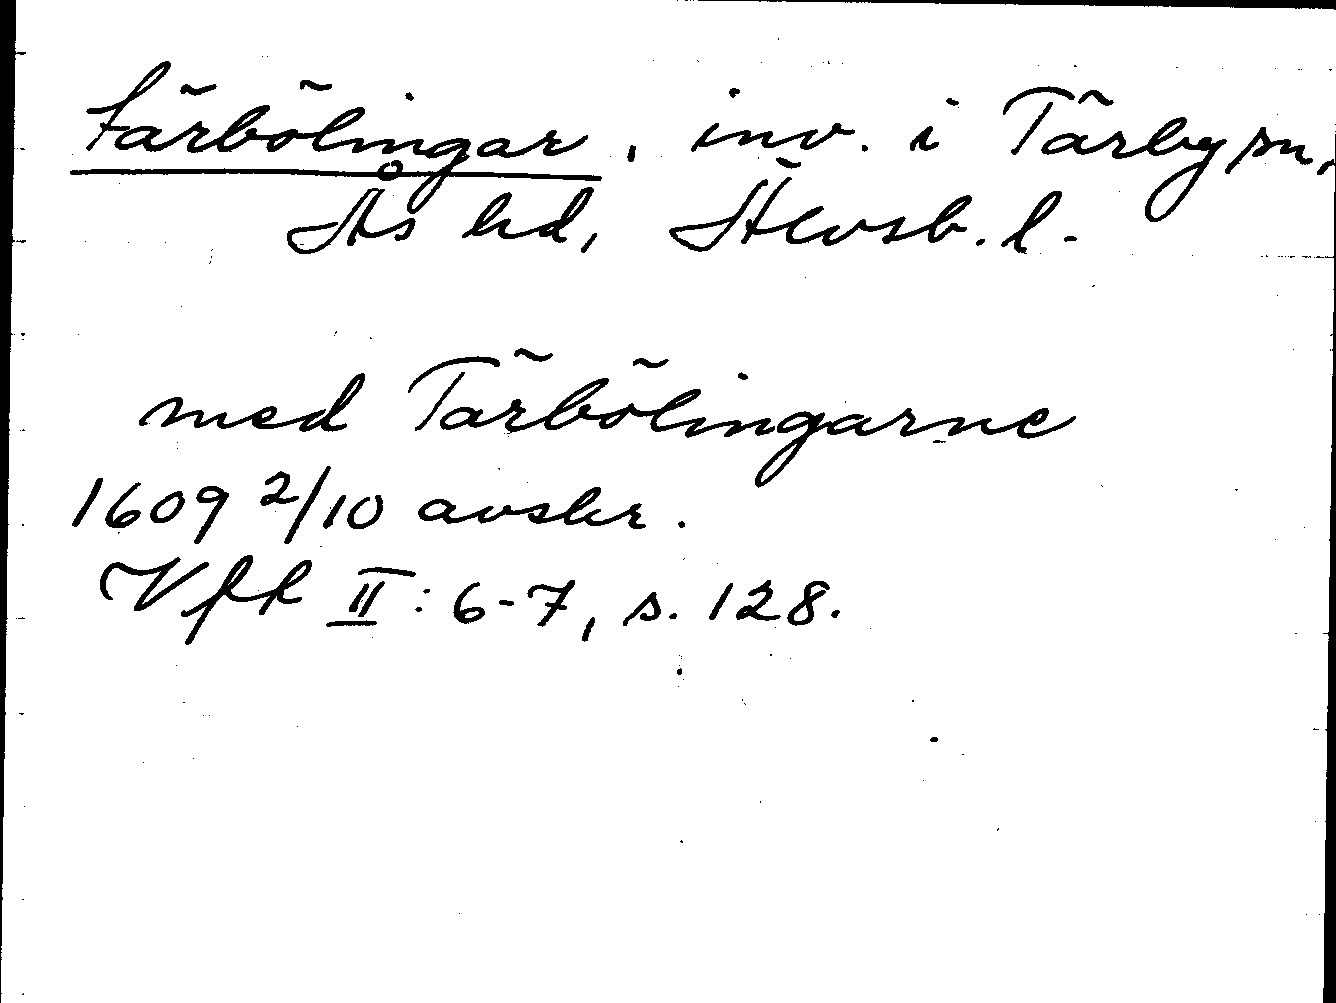 tärbölingar, inv. i Tärby sn,
Ås hd, Älvsb. l.
med Tärbölingarne
1609 2/10 avskr.
Vfk II: 6-7, s. 128.